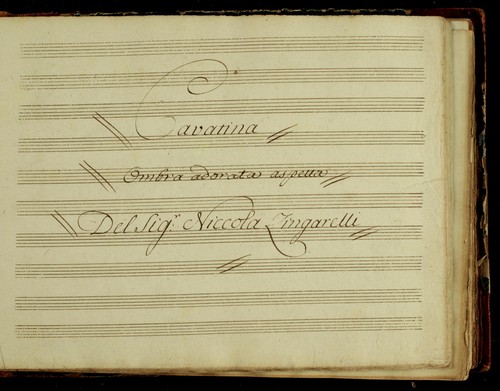 Cavatina
Ombra adorata aspetta
Del Sig.r Niccola Zingarelli